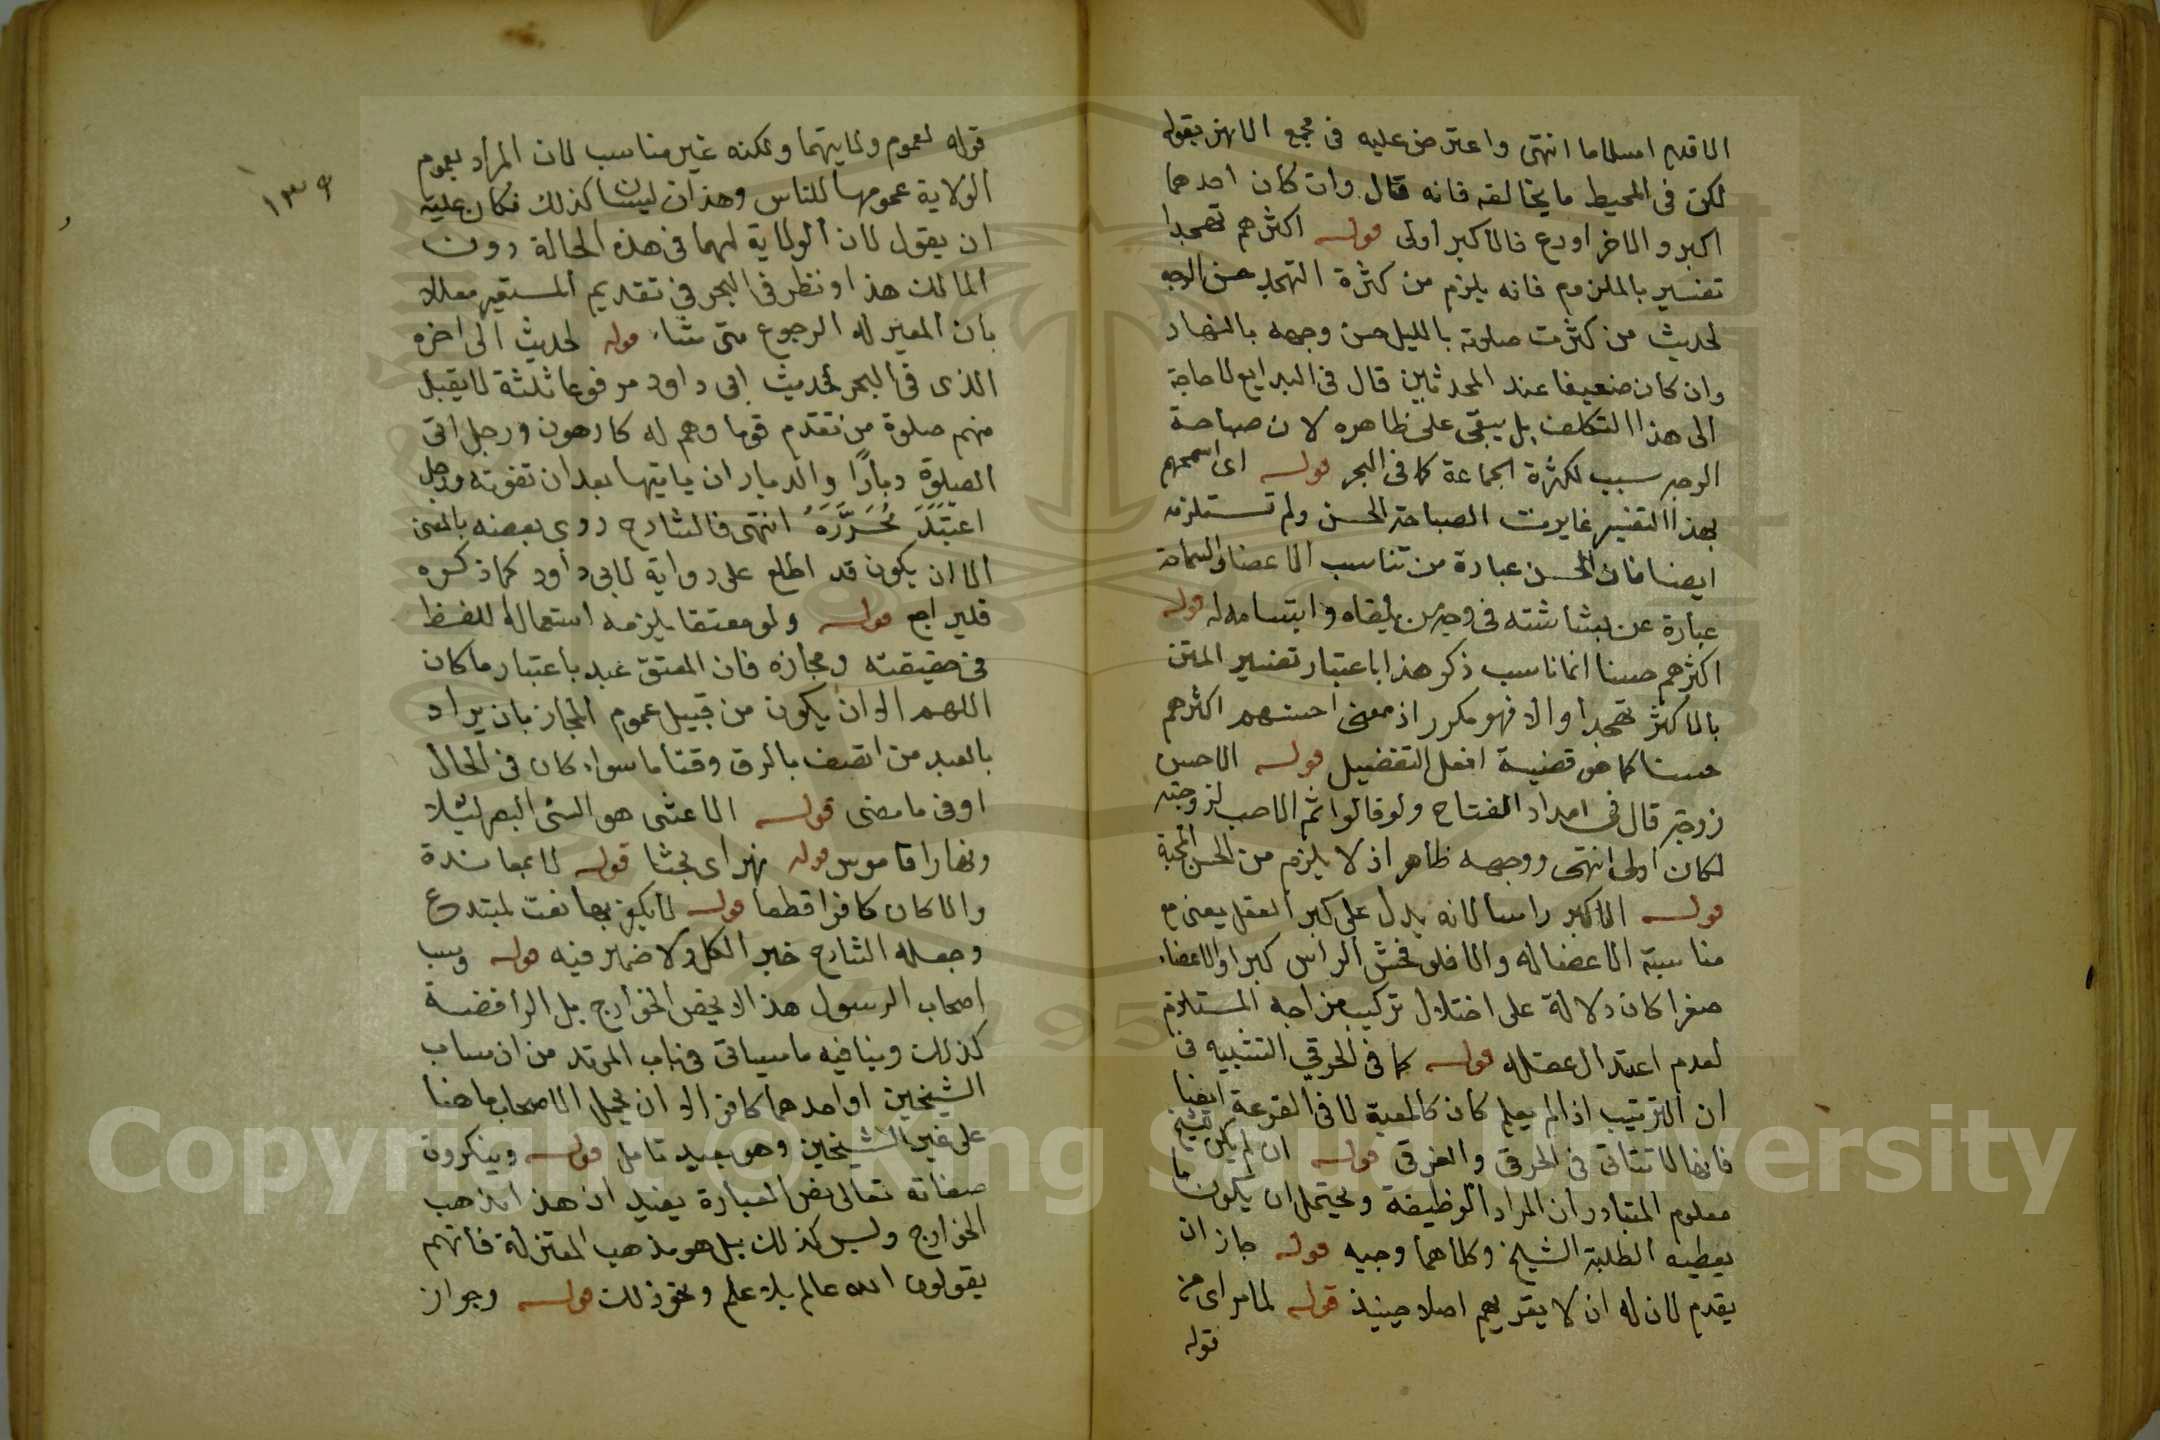 الاقدم اسلاما انتهى واعترض عليه فى مجمع الانهر بقوله
لكن فى المحيط ما يخالفه فانه قال وان كان احدهما
اكبر والاخر اورع فالاكبر اولى قوله اكثرهم تهجدا
تفسير بالملزوم فانه يلزم من كثرة التهجد حسن الوجه
لحديث من كثرت صلوته بالليل حسن وجهه بالنهار
وان كان ضعيفا عند المحدثين قال فى البدايع لا حاجة
الى هذا التكلف بل يبقى على ظاهره لان صباحة
الوجه سبب لكثرة الجماعة كما فى البحر قوله اى اسمحهم
بهذا التفسير غايرت الصباحة الحسن ولم تستلزمه
ايضا فان الحسن عبارة من تناسب الاعضا والسماحة
عبارة عن بشاشته فى وجه من يلقاه وابتسامه له قوله
اكثرهم حسنا انما ناسب ذكر هذا باعتبار تفسير المتن
بالاكثر تهجدا والا فهو مكرر اذ معنى احسنهم اكثرهم
حسنا كما هو قضية افعل التفضيل قوله الاحسن
زوجة قال فى امداد الفتاح ولو قالوا ثم الاحب لزوجته
لكان اولى انتهى ووجهه ظاهر اذ لا يلزم من الحسن المحبة
قوله الاكبر راسا لانه يدل على كبر العقل يعنى مع
مناسبة الاعضا له والا فلو فحش الراس كبرا والاعضاء
صغرا كان دلالة على اختلال تركيب مزاجه المستلزم
لعدم اعتدال عقله قوله كما فى الحرقى التشبيه فى
ان الترتيب اذا لم يعلم كان كالمعية لا فى القرعة ايضا
فانها لا تتاتى فى الحرقى والغرقى قوله ان لم يكن للشيخ
معلوم المتبادر ان المراد الوظيفة ويحتمل ان يكون ما
يعطيه الطلبة الشيخ وكلاهما وجيه قوله جاز ان
يقدم لان له ان لا يقريهم اصلا حينيذ قوله لما مر اى من
قوله
١٣٩
قوله لعموم ولايتهما ولكنه غير مناسب لان المراد بعموم
الولاية عمومها للناس وهذان ليسا كذلك فكان عليه
ان يقول لان الولاية لهما فى هذه الحالة دون
المالك هذا ونظر فى البحر فى تقديم المستعير معللا
بان المعير له الرجوع متى شاء قوله لحديث الى اخره
الذى فى البحر لحديث ابى داود مرفوعا ثلثة لا يقبل
منهم صلوة من تقدم قوما وهم له كارهون ورجل اتى
الصلوة دبارًا والدبار ان ياتيها بعد ان تفوته ورجل
اعتبد محرره انتهى فالشارح روى بعضه بالمعنى
الا ان يكون قد اطلع على رواية لابى داود كما ذكره
فليراجع قوله ولو معتقا يلزمه استعمال اللفظ
فى حقيقته ومجازه فان المعتق عبد باعتبار ما كان
اللهم الا ان يكون من قبيل عموم المجاز بان يراد
بالعبد من اتصف بالرق وقتا ما سواء كان فى الحال
او فى ما مضى قوله الاعشى هو السئ البصر ليلا
ونهارا قاموس قوله نهر اى بحثا قوله لا بمعاندة
والا كان كافرا قطعا قوله لا يكفر بها نعت لمبتدع
وجعله الشارح خبر الكل ولا ضمير فيه قوله وسب
اصحاب الرسول هذا لا يخص الخوارج بل الرافضة
كذلك وينافيه ما سياتى فى باب المرتد من ان ساب
الشيخين او احدهما كافر الا ان يحمل الاصحاب هاهنا
على غير الشيخين وهو بعيد تامل قوله وينكرون
صفاته تعالى نص العبارة يفيد ان هذا مذهب
الخوارج وليس كذلك بل هو مذهب المعتزلة فانهم
يقولون الله عالم بلا علم ونحو ذلك قوله وجواز
Copyright © King Saud University